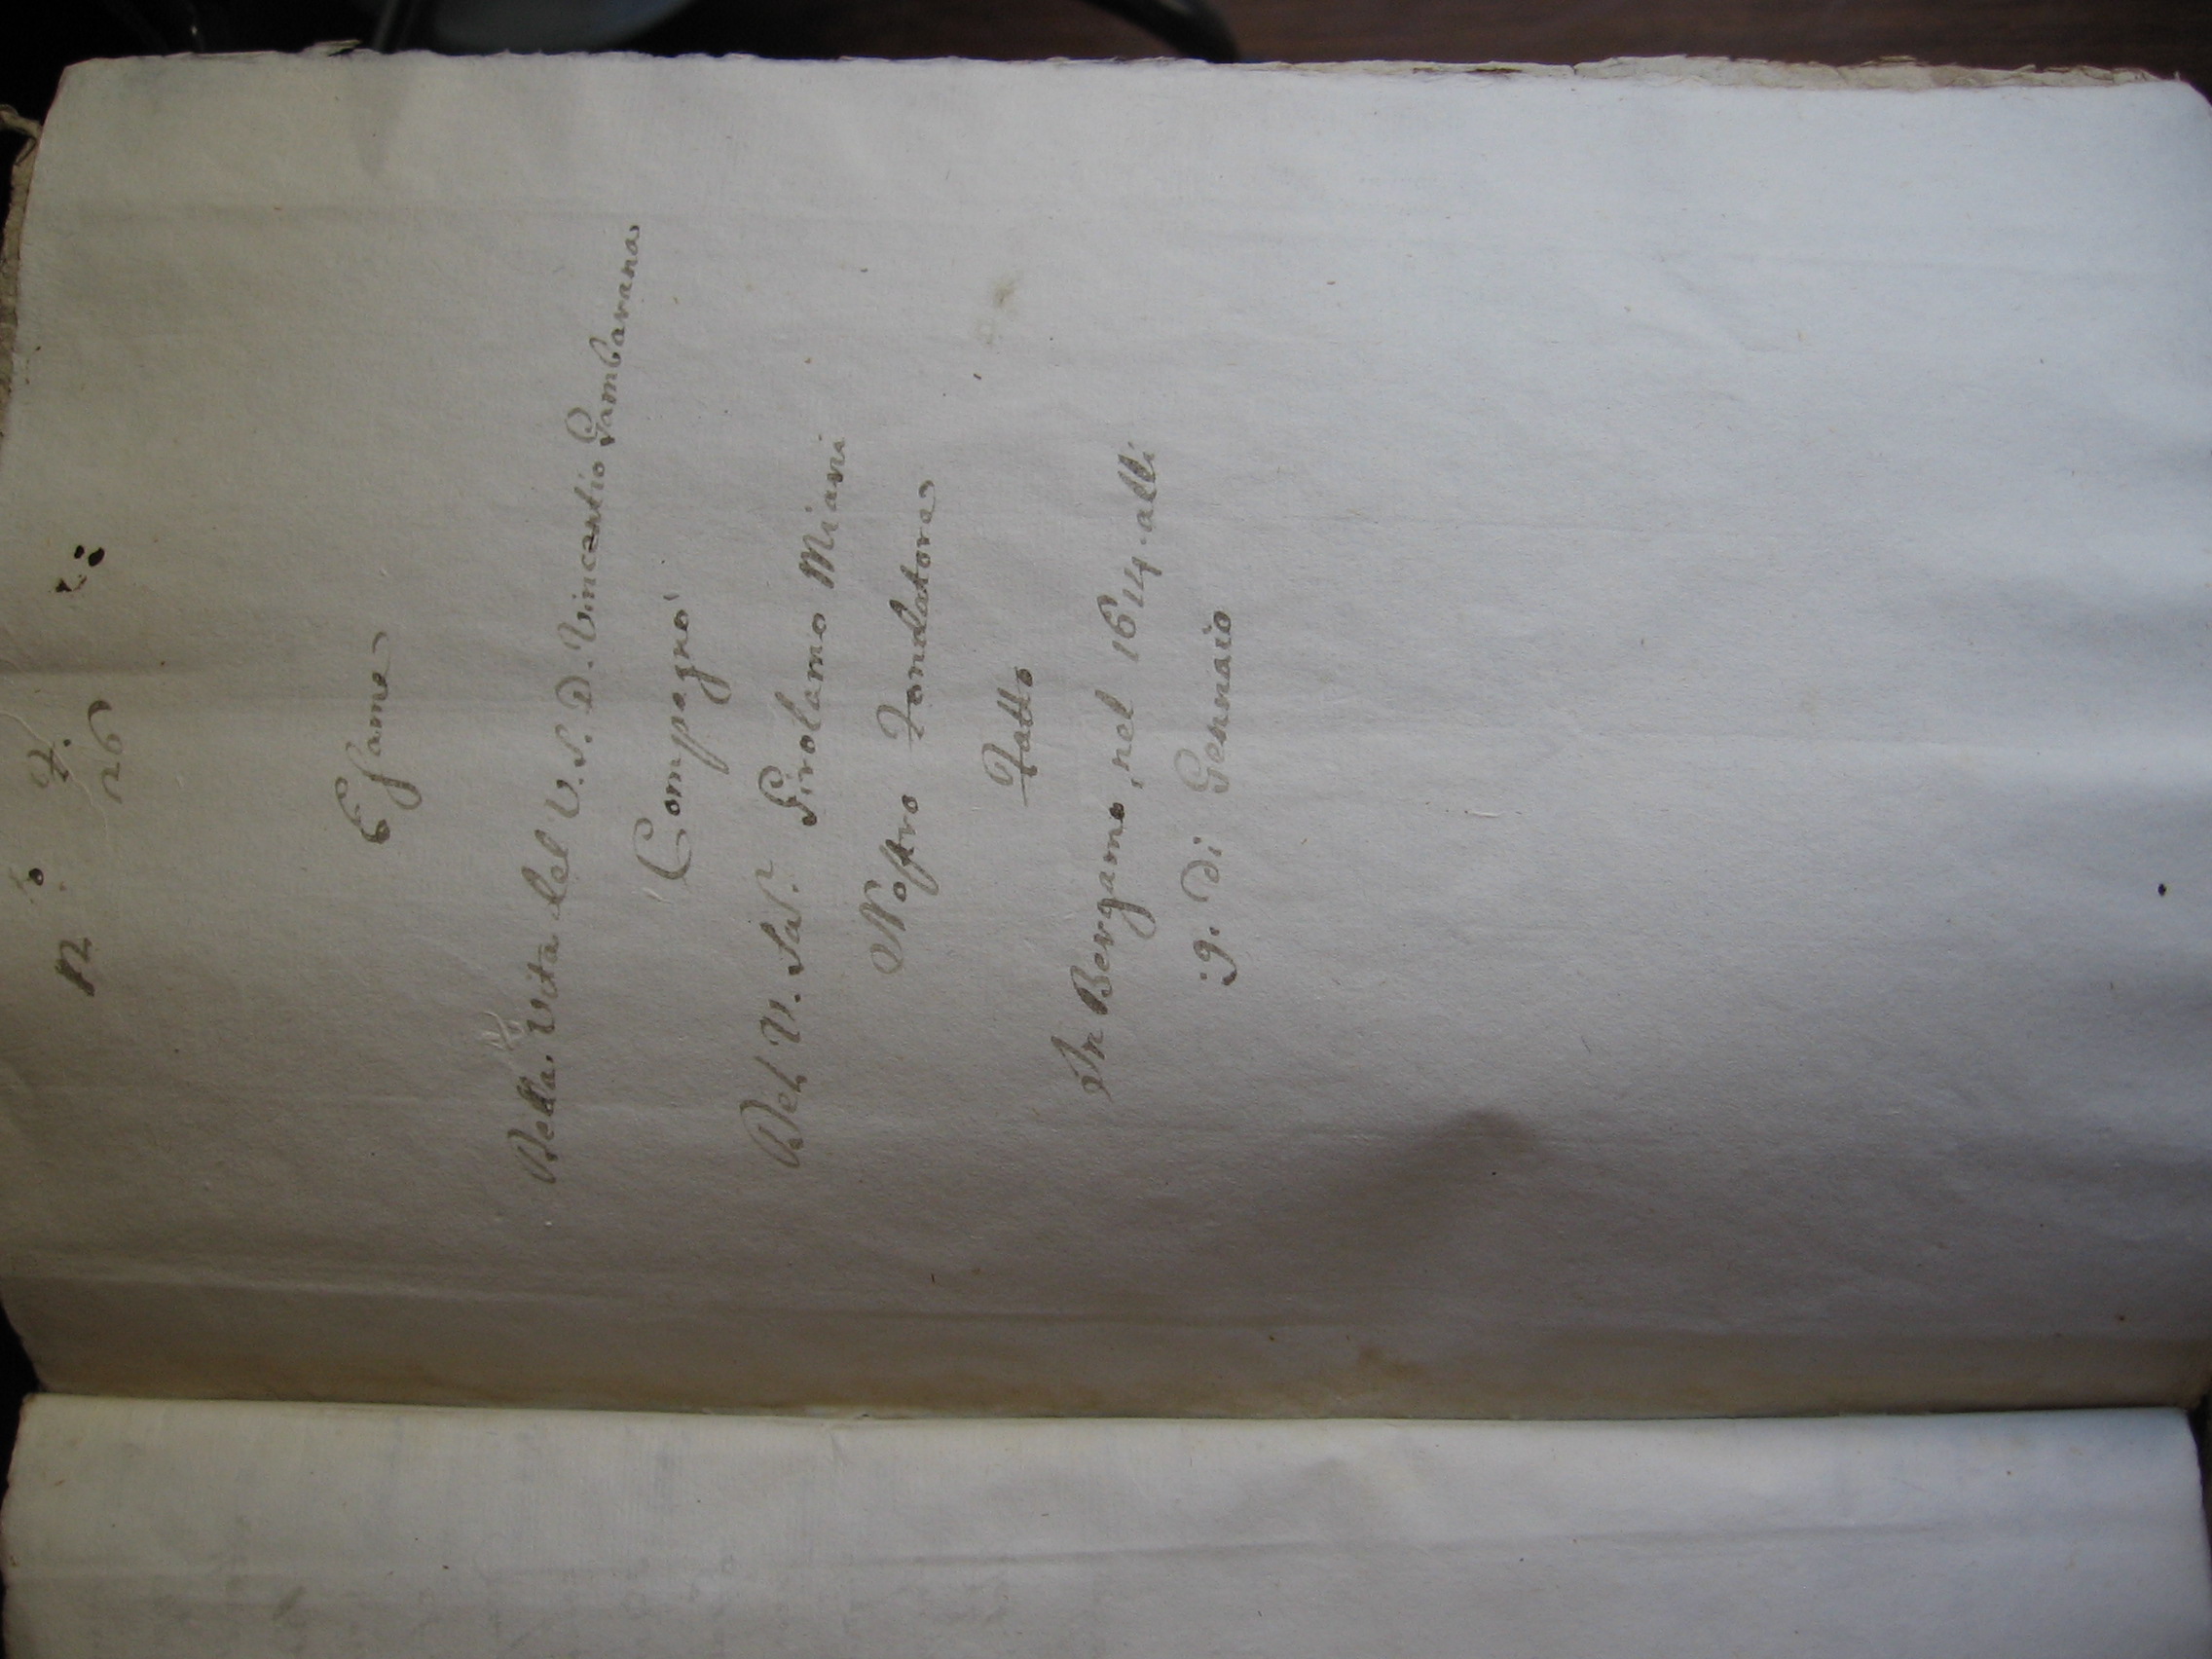 N.o 4.
26
Esame
Della Vita del V. P. D. Vincentio Gambarana
Compagno
Del V. Girolamo Miani
Nostro Fondatore
Fatto
In Bergamo, nel 1614. alli
9. di Gennaio